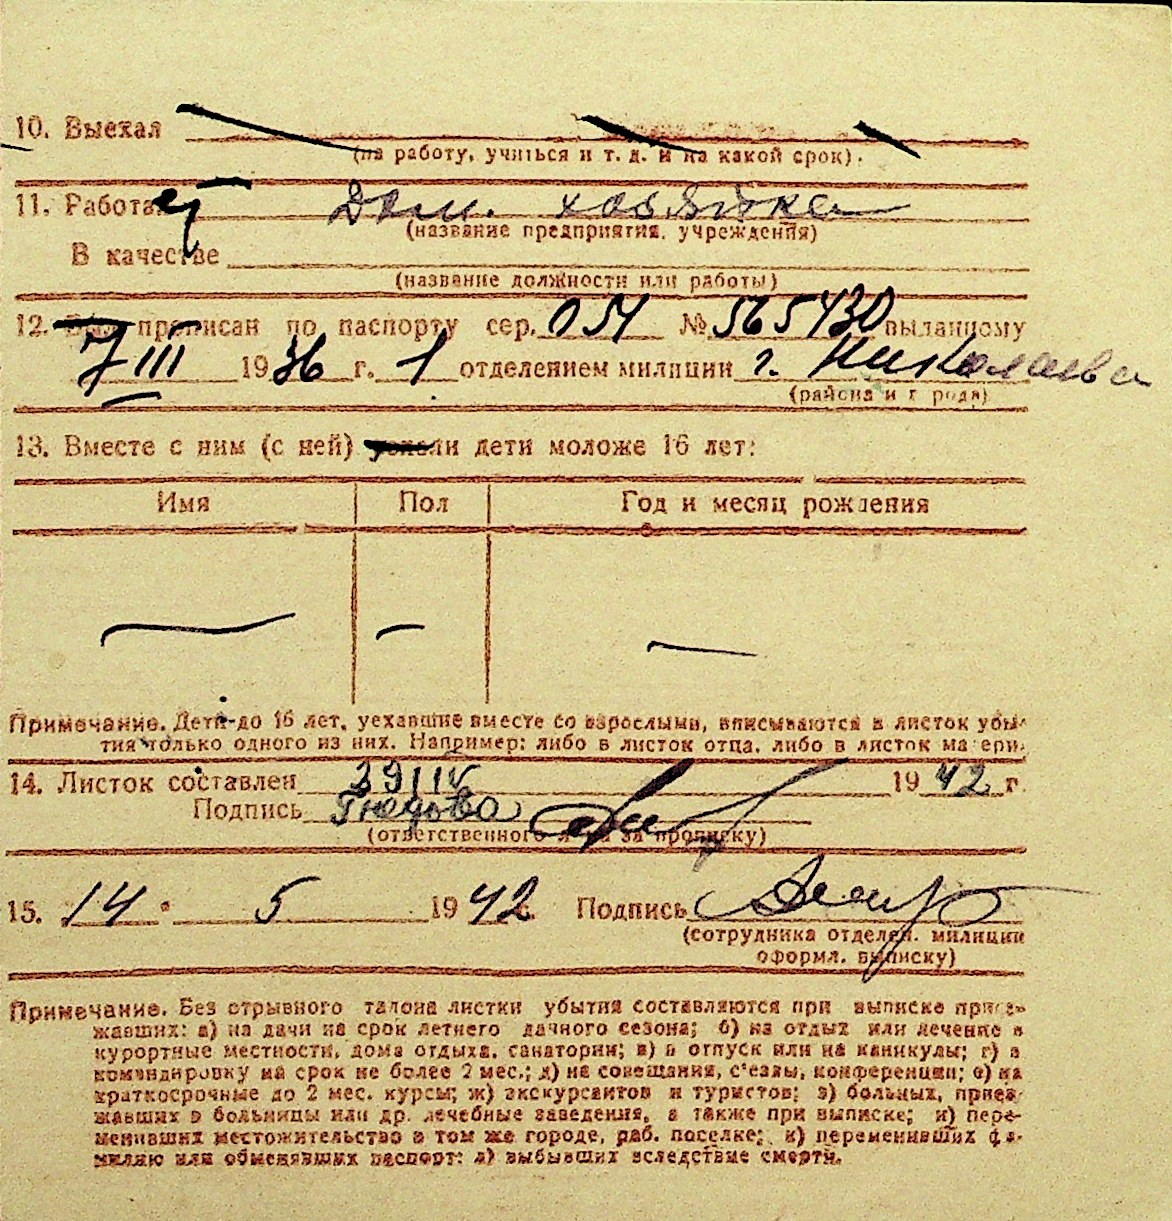 10. Выехал
(на работу, учиться и т. д. и на какой срок).
11. Работает Дом. хозяйка
(название предприятия, учреждения)
В качестве
(название должности или работы)
12. Был прописан по паспорту сер. 054 № 565430 выданному
7 III 1936 г. 1 отделением милиции г. Николаева
(района и города)
13. Вместе с ним (с ней) уехали дети моложе 16 лет:
Имя Пол Год и месяц рождения
Примечание. Дети до 16 лет, уехавшие вместе со взрослыми, вписываются в листок убы-
тия только одного из них. Например: либо в листок отца, либо в листок матери.
14. Листок составлен 29 IV 1942 г.
Подпись
(ответственного лица за прописку)
15. 14 • 5 1942 Подпись
(сотрудника отделен. милиции
оформл. выписку)
Примечание. Без отрывного талона листки убытия составляются при выписке приез-
жавших: а) на дачи на срок летнего дачного сезона; б) на отдых или лечение в
курортные местности, дома отдыха, санатории; в) в отпуск или на каникулы; г) в
командировку на срок не более 2 мес.; д) на совещания, с'езды, конференции; е) на
краткосрочные до 2 мес. курсы; ж) экскурсантов и туристов; з) больных, приез-
жавших в больницы или др. лечебные заведения, а также при выписке; и) пере-
менивших местожительство в том же городе, раб. поселке; к) переменивших фа-
милию или обменявших паспорт; л) выбывших вследствие смерти.